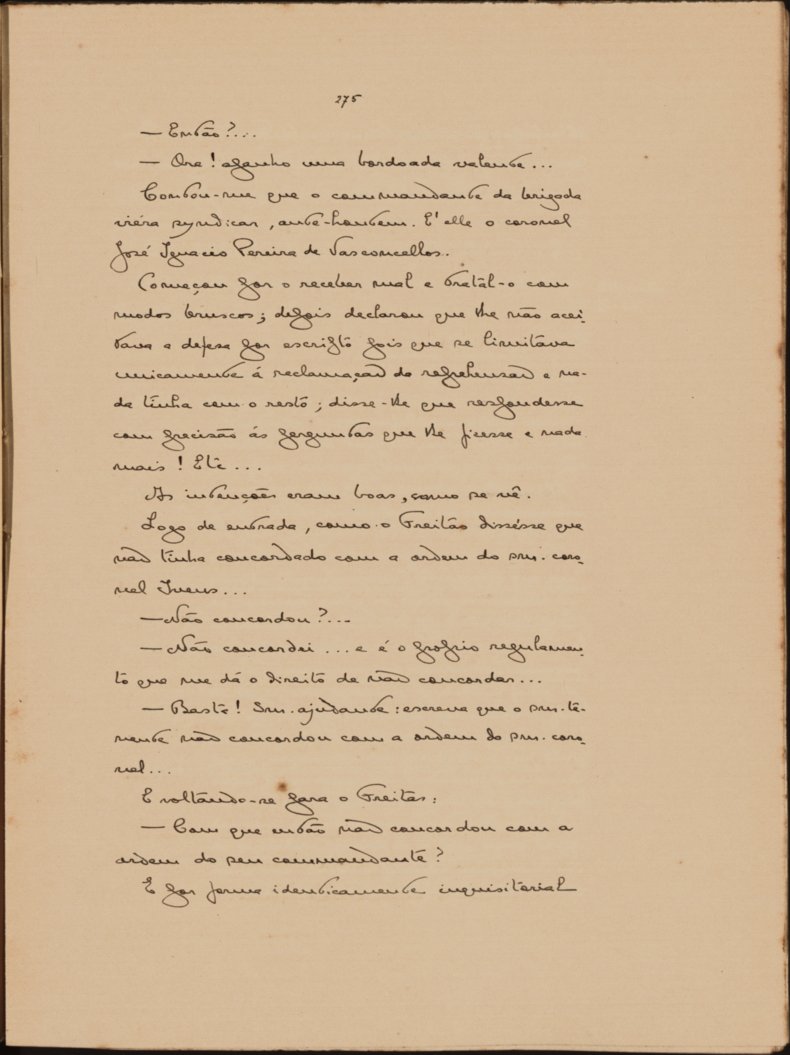 275
— Então?...
— Ora! apanho uma bordoada valente...
Contou-me que o commandante da brigada
viéra syndicar, ante-hontem. E' elle o coronel
José Ignacio Pereira de Vasconcellos.
Começou por o receber mal e tratál-o com
modos bruscos; depois declarou que lhe não acei-
tava a defesa por escripto pois que se limitava
unicamente á reclamação da reprehensão e na-
da tinha com o resto; disse-lhe que respondesse
com precisão ás perguntas que lhe fizesse e nada
mais! Etc...
As intenções eram boas, como se vê.
Logo de entrada, como o Freitas dissésse que
não tinha concordado com a ordem do snr. coro-
nel Ivens...
— Não concordou?...
— Não concordei... e é o proprio regulamen-
to que me dá o direito de não concordar...
— Basta! Snr. ajudante: escreva que o snr. te-
nente não concordou com a ordem do snr. coro-
nel...
E voltando-se para o Freitas:
— Com que então não concordou com a
ordem do seu commandante?
E por forma identicamente inquisitorial